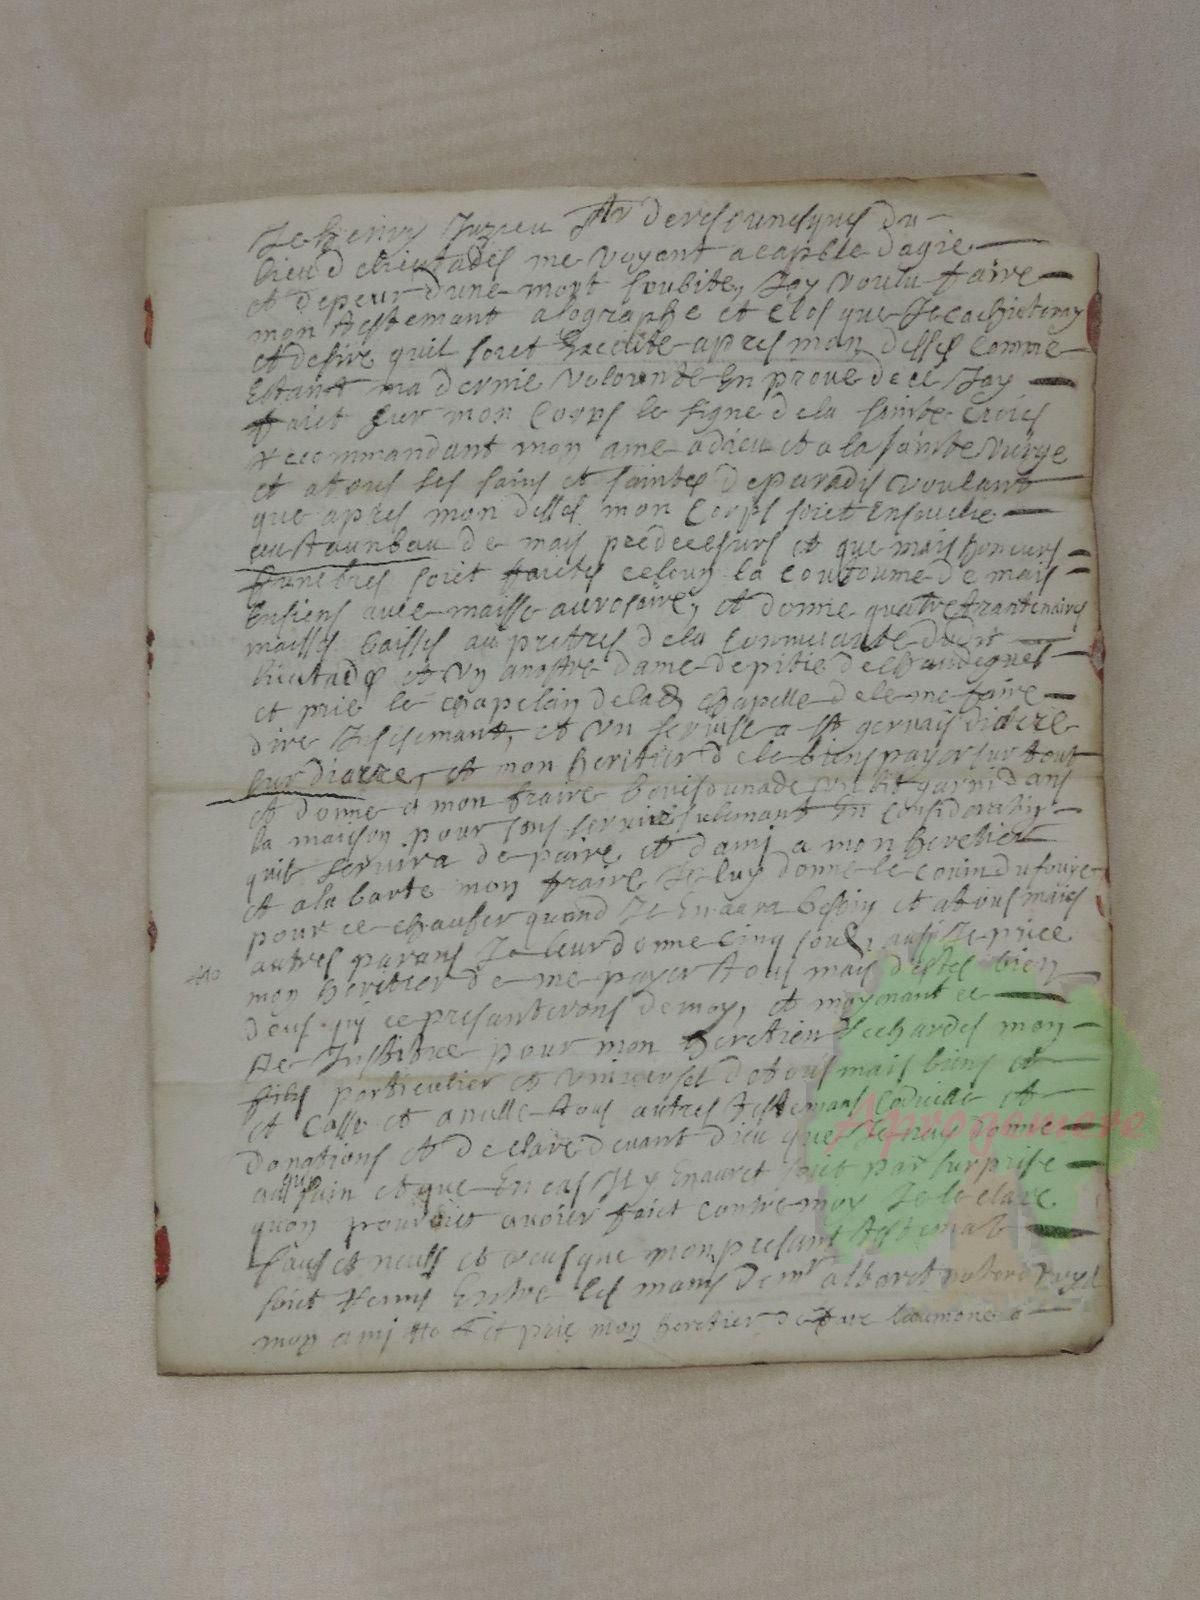 Je henry Juzieu Sr de
lieu d me voyant acapble dagie
et depeur dune mort soubite, Jay voulu faire
mon testemant alographe et clos que Je
et desire quil soiet Execute apres mon desses comme
Estant ma dernie volounte En prove de ce Jay
faict sur mon Corps le signe dela sainte Croies
recommandant mon ame a dieu et a la sainte vierge
et atous les sains et saintes de paradis voulant
que apres mon desses mon Corps soiet Ensevelie
au tounbau de mais predecesurs et que mais honeurs
funebres soiet faictes celoun la coutoume de mais
Ensiens avec maisse au rosaire, et donne quatre trantenaires
maisses baisses au pretres dela comunaute dudit
et un anostre dame de pitie de
et prie le chapelain delad chapelle dele me faire
dire et un servise a st gervais
et mon heritier dele bien payer sur tout
et donne a mon fraire un lit garni dans
la maison pour sons servise sulemant En consideration
quil servira de paire et dami a mon heretier
et a la barte mon fraire Je luy donne le couin du fouire
pour ce chaufer quand Je En aura besoin et atous mais
autres parans Je leur donne cinq sous, ausy Je priee
mon heretier de me payer tous mais detes bien
deus qui ce presanterons de moy, et moyenant ce
Je Instituee pour mon heretien mon
fils particulier et universel de tous mais biens et
et Casse et anulle tous autres testemans Codicille et
donations et declare devant dieu que
et que En cas Il y Enauret soiet par surprise
quon pouroiet avoier faict contre moy Je le clare
faus et nulls et veus que mon presant testemant
soiet remis Entre les mains de mr
mon ami et prie mon heretier de faire laumone a
Aprogemere